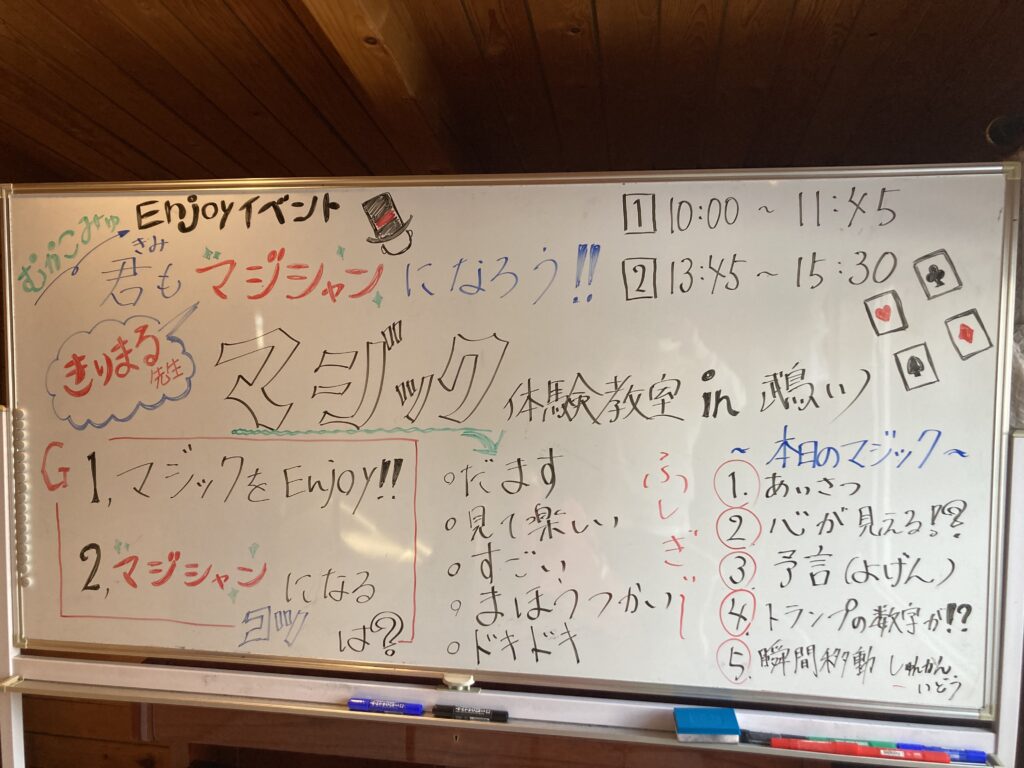 Enjoyイベント
むかこみゅ
きみ
君もマジシャンになろう!!
1 10:00 ~ 11:45
2 13:45 ~ 15:30
きりまる先生
マジック体験教室 in
G
1, マジックをEnjoy!!
2, マジシャンになる
コツは?
○だます
○見て楽しい
○すごい
○まほうつかい
○ドキドキ
ふしぎー
~ 本日のマジック ~
1. あいさつ
2 心が見える!?
3 予言(よげん)
4. トランプの数字が!?
5. 瞬間移動 しゅんかん
いどう